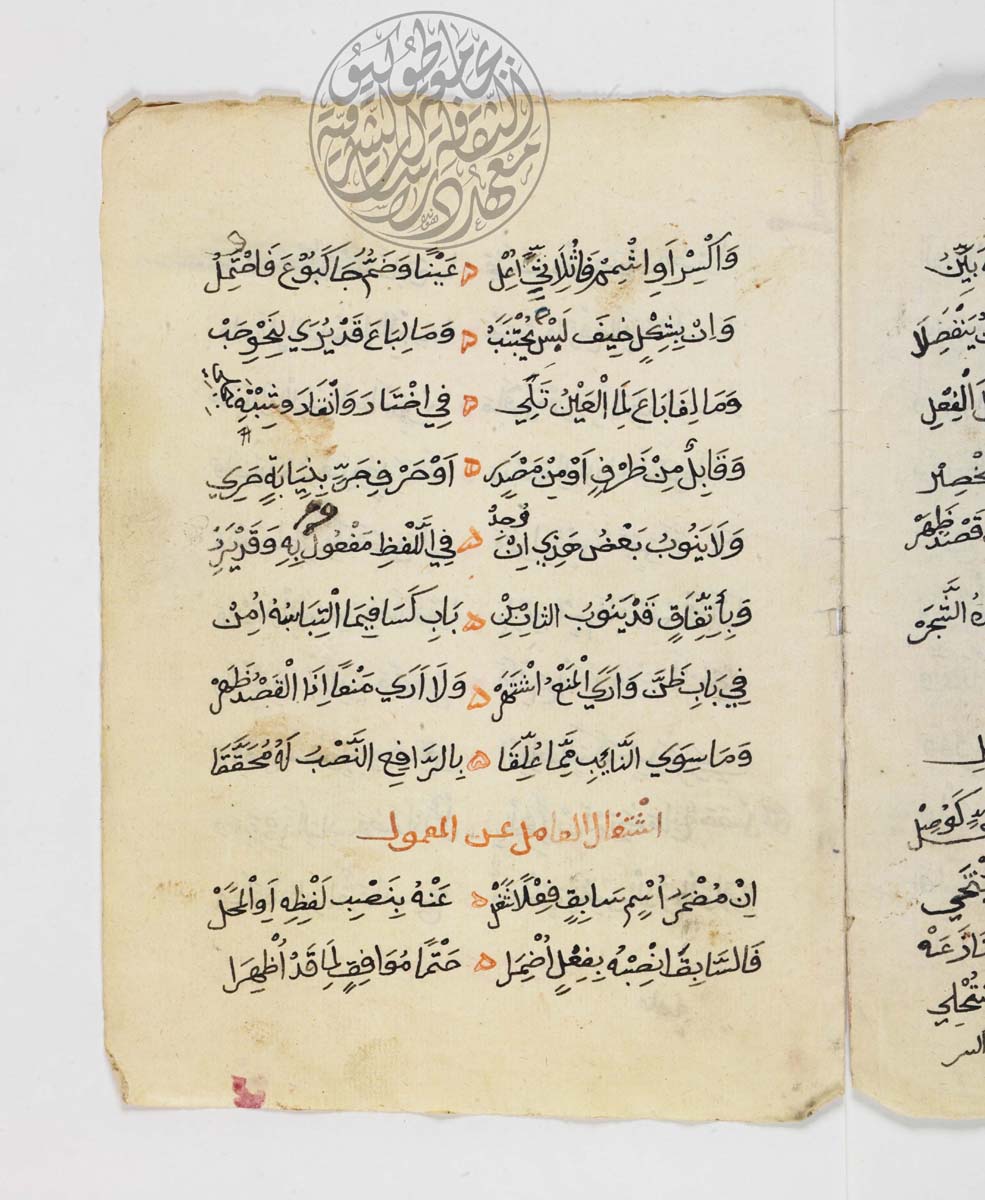 وَاكْسِرْ اَوِ اشْمِمْ فَاثُلَاثِيٍّ اُعِلْ ه عَيْنًا وَضَمٌّ جَا كَبُوْعَ فَاحْتُمِلْ
وَاِنْ بِشِكْلٍ خِيفَ لَبْسٌ يُجْتَنَبْ ه وَمَا لِبَاعَ قَدْ يُرَي لِنَحْوِ حَبْ
وَمَا لِفَا بَاعَ لِمَا الْعَيْنُ تَلِي ه فِي اخْتَارَ وَانْقَادَ وَشِبْهٍ
وَقَابِلٌ مِنْ ظَرْفٍ اَوْ مِنْ مَصْدَرِ ه اَوْ حَرْفِ جَرٍّ بِنِيَابَةٍ حَرِي
وَلَا يَنُوبُ بَعْضُ هَذِي اِنْ وُجِدْ ه فِي اللَّفْظِ مَفْعُولٌ بِهِ وَقَدْ يَرِدْ
وَبِاتِّفَاقٍ قَدْ يَنُوبُ الثَانِ مِنْ ه بَابِ كَسَا فِيمَا الْتِبَاسُهُ اُمِنْ
فِي بَابِ ظَنَّ وَاَرَي الْمَنْعُ اشْتَهَرْ ه وَلَا اَرَي مَنْعًا اِذَا الْقَصْدُ ظَهَرْ
وَمَا سِوَي النَّايِبِ مِمَّا عُلِّقَا ه بِالرَّافِعِ النَّصْبُ لَهُ مُحَقَّقَا
اشْتغال العامل عن المعمول
اِنْ مُضْمَرُ اسْمٍ سَابِقٍ فِعْلًا شَغَلْ ه عَنْهُ بِنَصْبِ لَفْظِهِ اَوِ الْمَحَلْ
فَالسَّابِقَ انْصِبْهُ بِفِعْلٍ اُضْمِرَا ه حَتْمًا مُوَافِقٍ لِمَا قَدْ اُظْهِرَا